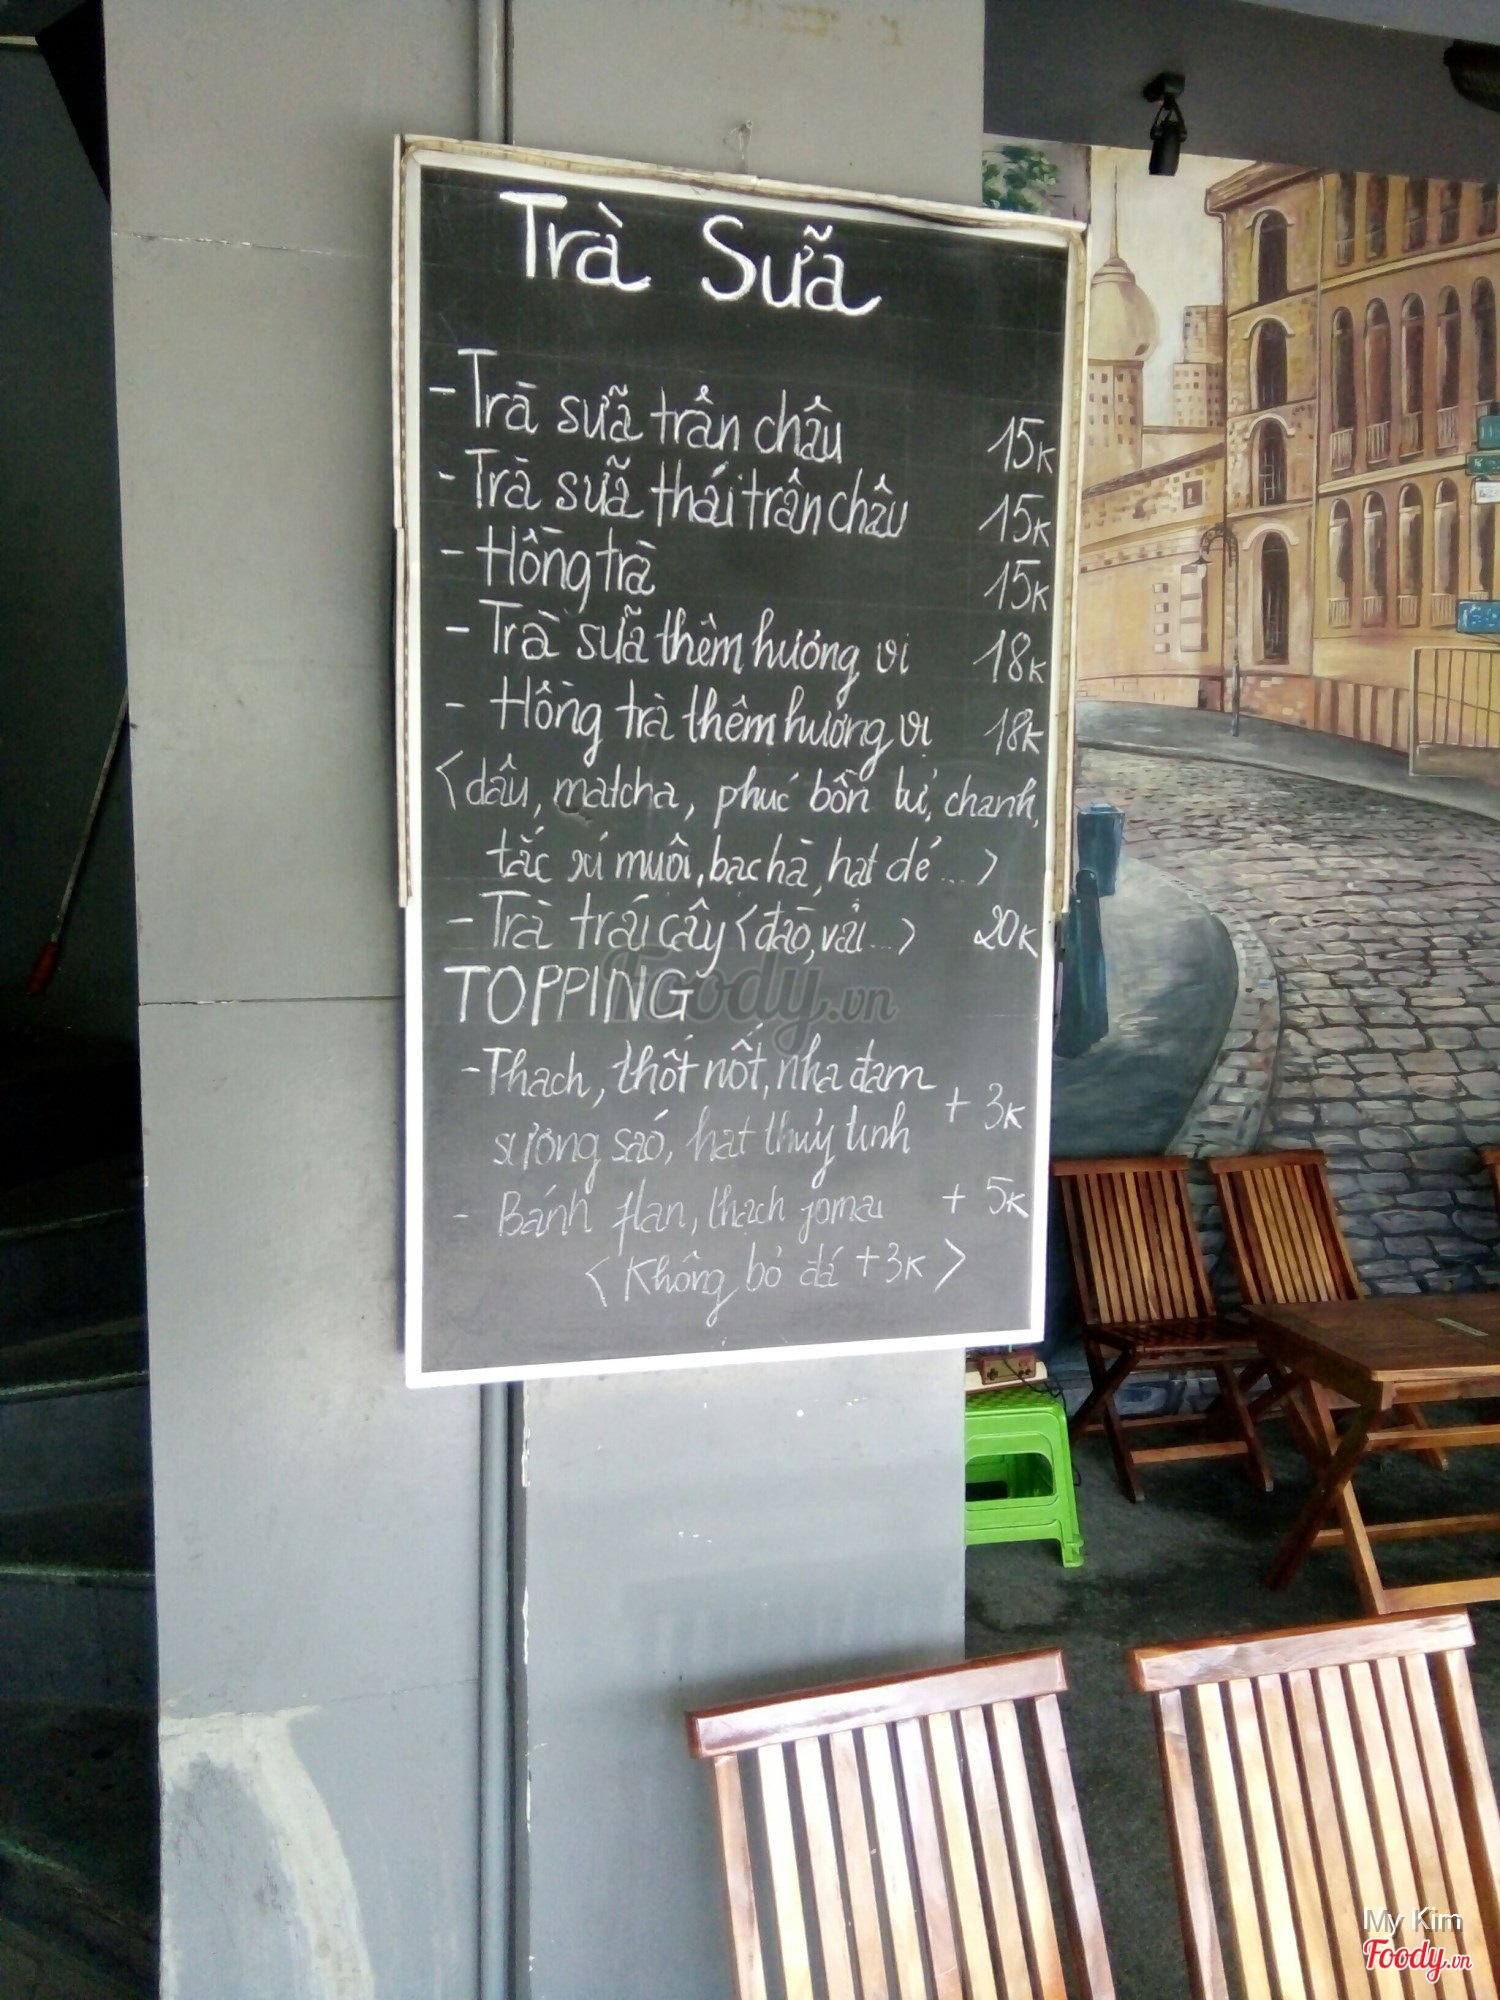 Trà Sữa
- Trà sữa trân châu 15K
- Trà sữa thái trân châu 15K
- Hồng trà 15K
- Trà sữa thêm hương vị 18K
- Hồng trà thêm hương vị 18K
<dâu, matcha, phúc bồn tử, chanh,
tắc xí muội, bạc hà, hạt dẻ...>
- Trà trái cây <đào, vải...> 20K
TOPPING
- Thạch, thốt nốt, nha đam
sương sáo, hạt thủy tinh + 3K
- Bánh flan, thạch jomai + 5K
<Không bỏ đá +3K>
Foody.vn
My Kim
Foody.vn